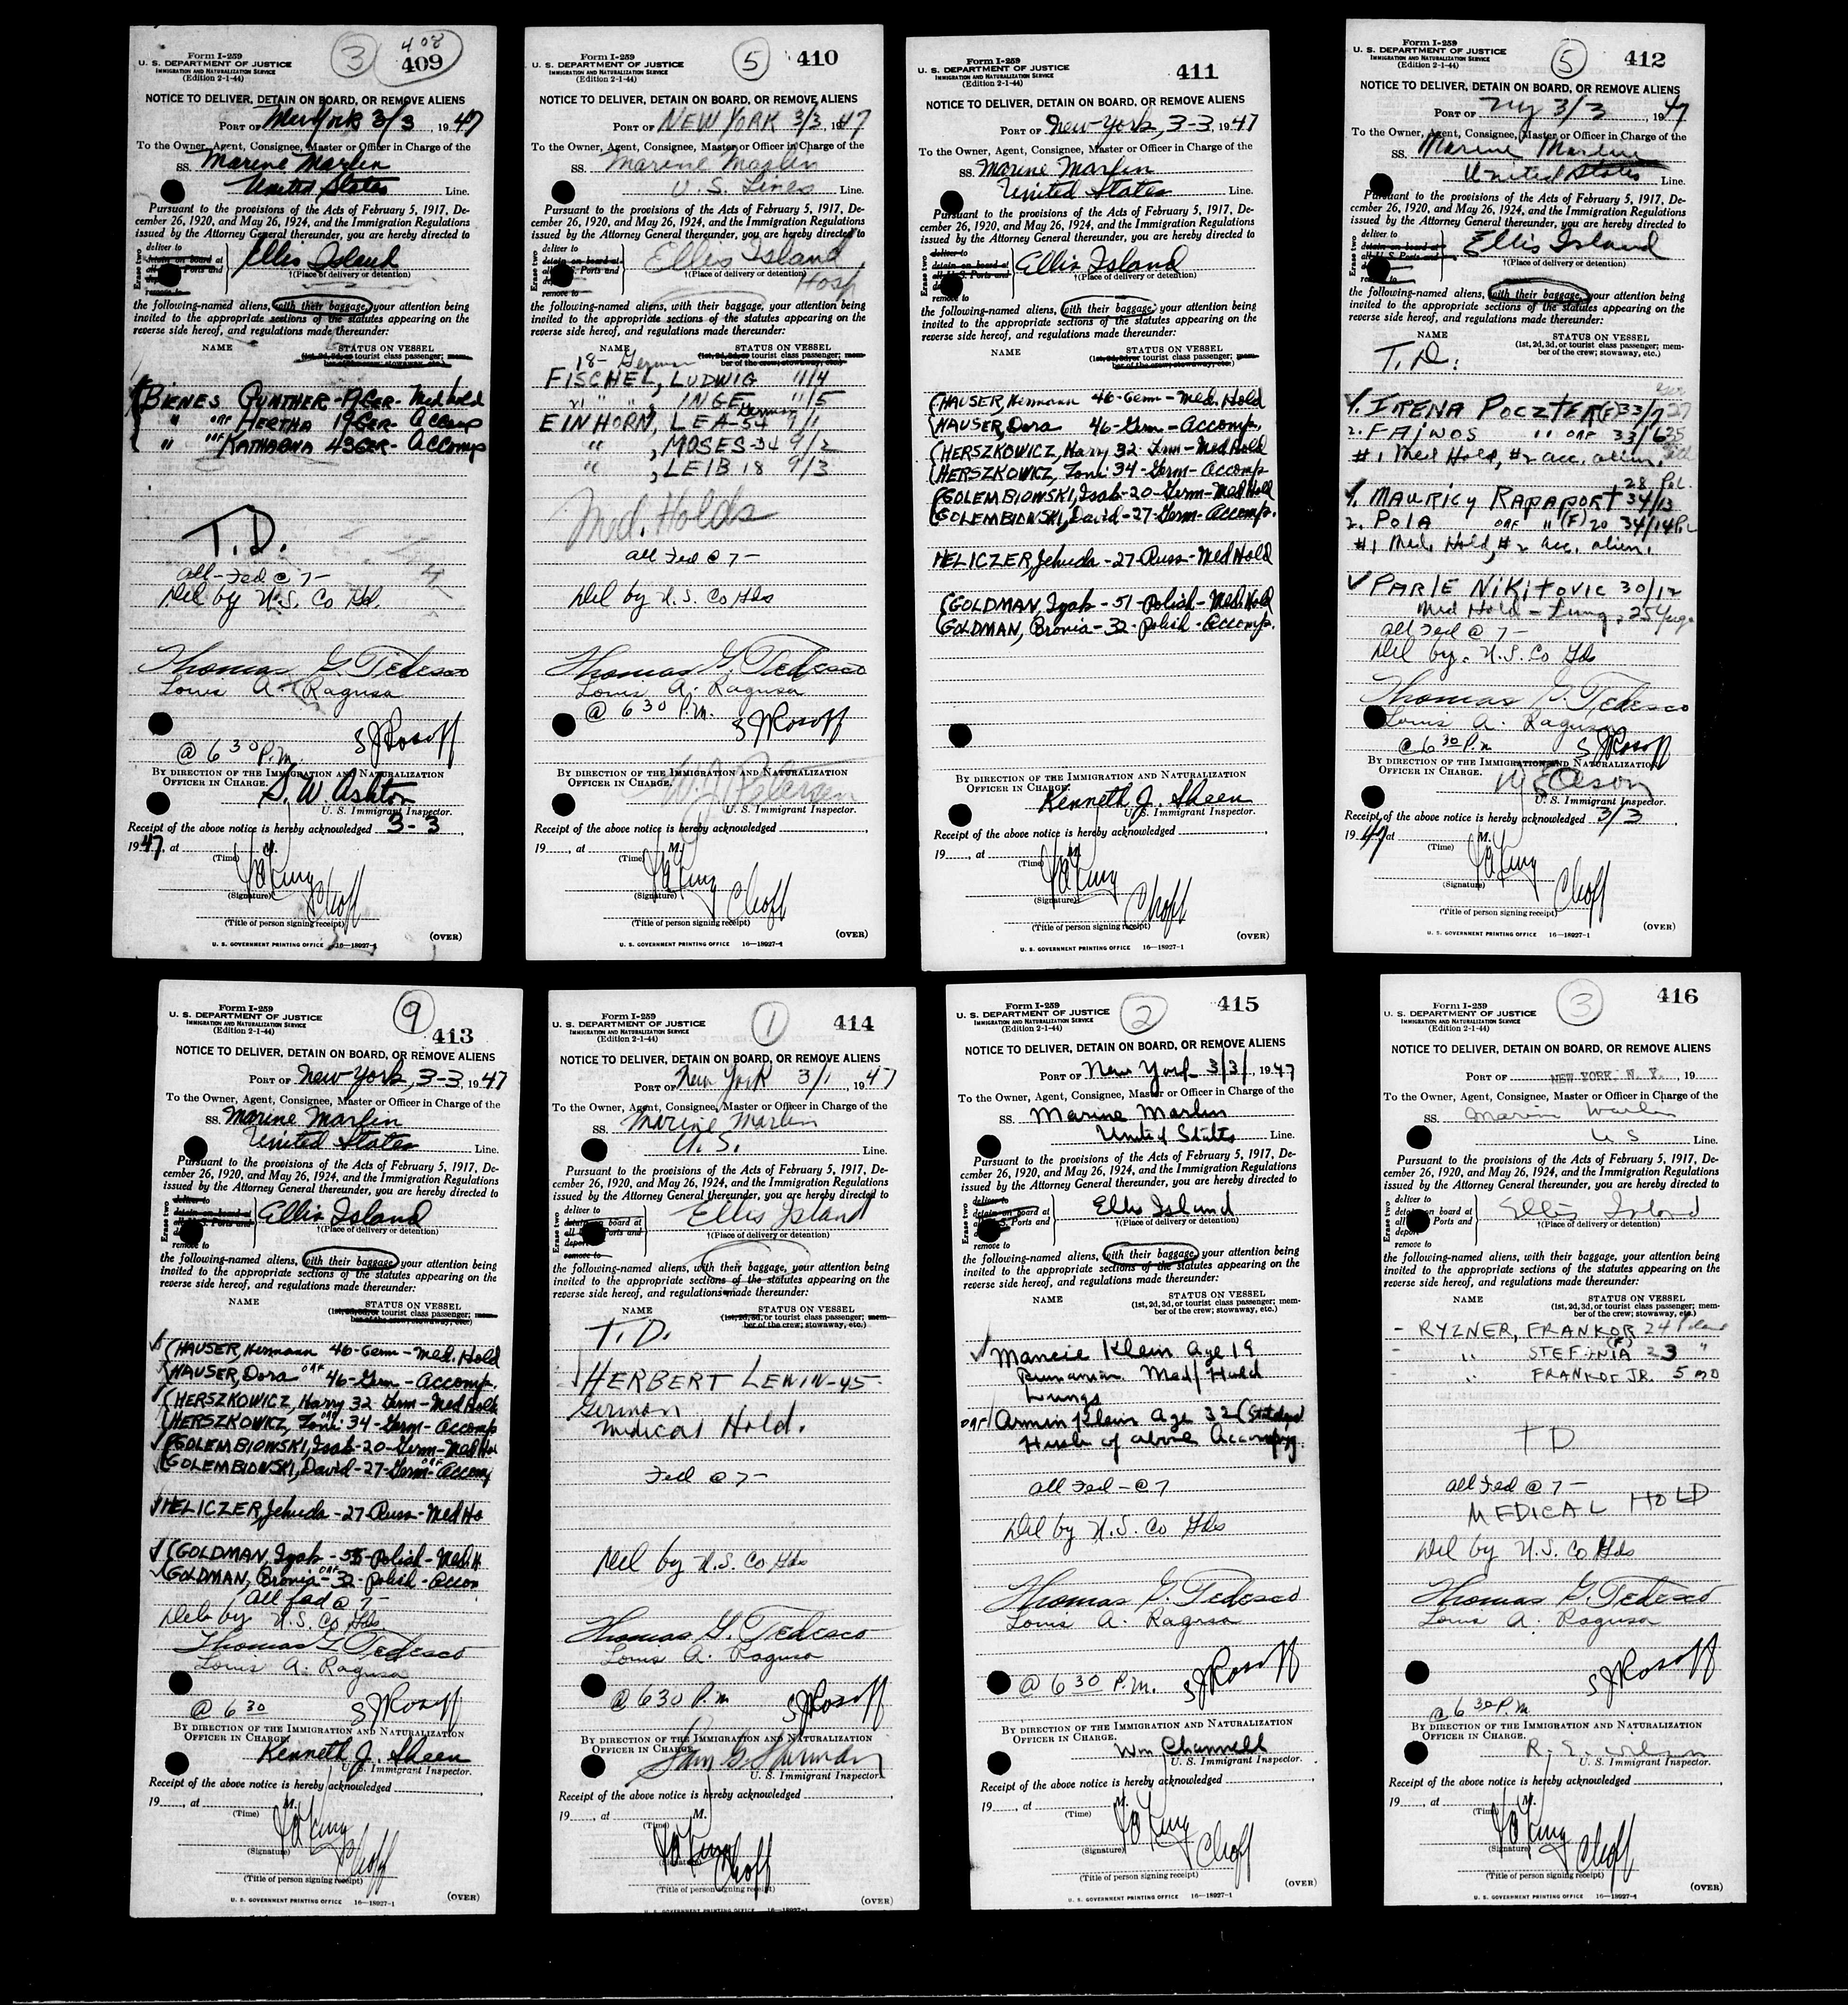 Form I-259
U. S. DEPARTMENT OF JUSTICE
IMMIGRATION AND NATURALIZATION SERVICE
(Edition 2-1-44)
3
408
409
NOTICE TO DELIVER, DETAIN ON BOARD, OR REMOVE ALIENS
PORT OF New York 3/3, 1947
To the Owner, Agent, Consignee, Master or Officer in Charge of the
SS. Marine Marlin
United States Line.
Pursuant to the provisions of the Acts of February 5, 1917, De-
cember 26, 1920, and May 26, 1924, and the Immigration Regulations
issued by the Attorney General thereunder, you are hereby directed to
Erase two
deliver to
detain on board at
all Ports and
remote to
Ellis Island
†(Place of delivery or detention)
the following-named aliens, with their baggage, your attention being
invited to the appropriate sections of the statutes appearing on the
reverse side hereof, and regulations made thereunder:
NAME STATUS ON VESSEL
(1st, 2d, 3d, or tourist class passenger; mem-
ber of the crew; stowaway, etc.)
BIENES GUNTHER - GER - Med hold
" HERTHA 19 GER - Accomp
" KATHARINA 43 GER - Accomp
T.D.
all - Fed @ 7 -
Del by U.S. Co Gd.
Thomas G. Tedesco
Louis A. Ragusa
@ 6 30 P.m. S J Rosoff
BY DIRECTION OF THE IMMIGRATION AND NATURALIZATION
OFFICER IN CHARGE.
S. W. Ashton
U. S. Immigrant Inspector.
Receipt of the above notice is hereby acknowledged 3-3,
1947, at M.
(Time)
(Signature)
(Title of person signing receipt)
(OVER)
U. S. GOVERNMENT PRINTING OFFICE 16—18927-1
Form I-259
U. S. DEPARTMENT OF JUSTICE
IMMIGRATION AND NATURALIZATION SERVICE
(Edition 2-1-44)
5
410
NOTICE TO DELIVER, DETAIN ON BOARD, OR REMOVE ALIENS
PORT OF NEW YORK 3/3, 1947
To the Owner, Agent, Consignee, Master or Officer in Charge of the
SS. Marine Marlin
U. S. Lines Line.
Pursuant to the provisions of the Acts of February 5, 1917, De-
cember 26, 1920, and May 26, 1924, and the Immigration Regulations
issued by the Attorney General thereunder, you are hereby directed to
Erase two
deliver to
detain on board at
all S. Ports and
remote to
Ellis Island
†(Place of delivery or detention)
Hosp
the following-named aliens, with their baggage, your attention being
invited to the appropriate sections of the statutes appearing on the
reverse side hereof, and regulations made thereunder:
NAME STATUS ON VESSEL
(1st, 2d, 3d, or tourist class passenger; mem-
ber of the crew; stowaway, etc.)
18 - German
FISCHEL, LUDWIG 11/4
21 " " , INGE " 11/5
German
EINHORN, LEA - 54 9/1
" , MOSES - 34 9/2
" , LEIB 18 9/3
Med. Holds
all Fed @ 7 -
Del by U. S. Co Gds
Thomas G. Tedesco
Louis A. Ragusa
@ 6 30 P.m. S J Rosoff
BY DIRECTION OF THE IMMIGRATION AND NATURALIZATION
OFFICER IN CHARGE.
U. S. Immigrant Inspector.
Receipt of the above notice is hereby acknowledged ,
19 , at M.
(Time)
(Signature)
(Title of person signing receipt)
(OVER)
U. S. GOVERNMENT PRINTING OFFICE 16—18927-1
Form I-259
U. S. DEPARTMENT OF JUSTICE
IMMIGRATION AND NATURALIZATION SERVICE
(Edition 2-1-44)
411
NOTICE TO DELIVER, DETAIN ON BOARD, OR REMOVE ALIENS
PORT OF New York, 3-3, 1947
To the Owner, Agent, Consignee, Master or Officer in Charge of the
SS. Marine Marlin
United States Line.
Pursuant to the provisions of the Acts of February 5, 1917, De-
cember 26, 1920, and May 26, 1924, and the Immigration Regulations
issued by the Attorney General thereunder, you are hereby directed to
Erase two
deliver to
detain on board at
all S. Ports and
remote to
Ellis Island
†(Place of delivery or detention)
the following-named aliens, with their baggage, your attention being
invited to the appropriate sections of the statutes appearing on the
reverse side hereof, and regulations made thereunder:
NAME STATUS ON VESSEL
(1st, 2d, 3d, or tourist class passenger; mem-
ber of the crew; stowaway, etc.)
(HAUSER, Hermann 46 - Germ - Med. Hold
(HAUSER, Dora 46 - Germ - Accomp.
(HERSZKOWICZ, Harry 32 - Germ - Med Hold
(HERSZKOWICZ, Toni - 34 - Germ - Accomp
(GOLEMBIOWSKI, Isab - 20 - Germ - Med Hold
(GOLEMBIOWSKI, David - 27 - Germ - Accomp.
HELICZER, Jehuda - 27 - Russ - Med Hold
(GOLDMAN, Izak - 51 - Polish - Med. Hold
(GOLDMAN, Bronia - 32 - Polish - Accomp.
BY DIRECTION OF THE IMMIGRATION AND NATURALIZATION
OFFICER IN CHARGE.
Kenneth J. Sheen
U. S. Immigrant Inspector.
Receipt of the above notice is hereby acknowledged ,
19 , at M.
(Time)
(Signature)
(Title of person signing receipt)
(OVER)
U. S. GOVERNMENT PRINTING OFFICE 16—18927-1
Form I-259
U. S. DEPARTMENT OF JUSTICE
IMMIGRATION AND NATURALIZATION SERVICE
(Edition 2-1-44)
5
412
NOTICE TO DELIVER, DETAIN ON BOARD, OR REMOVE ALIENS
PORT OF NY 3/3, 1947
To the Owner, Agent, Consignee, Master or Officer in Charge of the
SS. Marine Marlin
United States Line.
Pursuant to the provisions of the Acts of February 5, 1917, De-
cember 26, 1920, and May 26, 1924, and the Immigration Regulations
issued by the Attorney General thereunder, you are hereby directed to
Erase two
deliver to
detain on board at
all U. S. Ports and
remote to
Ellis Island
†(Place of delivery or detention)
the following-named aliens, with their baggage, your attention being
invited to the appropriate sections of the statutes appearing on the
reverse side hereof, and regulations made thereunder:
NAME STATUS ON VESSEL
(1st, 2d, 3d, or tourist class passenger; mem-
ber of the crew; stowaway, etc.)
T.D.
1. IRENA POCZTER (F) 33/7 27
2. FAJWOS " 33/6 35
#1 Med Hold, #2 acc. alien.
28 Pol
1. MAURICY RAPAPORT 34/13
2. POLA " (F) 20 34/14
#1 Med. Hold, #2 acc. alien.
PARLE NIKITOVIC 30/12
Med Hold - Lung, 25 Yug.
all Fed @ 7 -
Del by. U.S. Co Gds
Thomas G. Tedesco
Louis A. Ragusa
@ 6 30 P.m S J Rosoff
BY DIRECTION OF THE IMMIGRATION AND NATURALIZATION
OFFICER IN CHARGE.
U. S. Immigrant Inspector.
Receipt of the above notice is hereby acknowledged 3/3
1947 at M.
(Time)
(Signature)
(Title of person signing receipt)
(OVER)
U. S. GOVERNMENT PRINTING OFFICE 16—18927-1
Form I-259
U. S. DEPARTMENT OF JUSTICE
IMMIGRATION AND NATURALIZATION SERVICE
(Edition 2-1-44)
9
413
NOTICE TO DELIVER, DETAIN ON BOARD, OR REMOVE ALIENS
PORT OF New York, 3-3, 1947
To the Owner, Agent, Consignee, Master or Officer in Charge of the
SS. Marine Marlin
United States Line.
Pursuant to the provisions of the Acts of February 5, 1917, De-
cember 26, 1920, and May 26, 1924, and the Immigration Regulations
issued by the Attorney General thereunder, you are hereby directed to
Erase two
deliver to
detain on board at
all S. Ports and
remote to
Ellis Island
†(Place of delivery or detention)
the following-named aliens, with their baggage, your attention being
invited to the appropriate sections of the statutes appearing on the
reverse side hereof, and regulations made thereunder:
NAME STATUS ON VESSEL
(1st, 2d, 3d, or tourist class passenger; mem-
ber of the crew; stowaway, etc.)
(HAUSER, Hermann 46 - Germ - Med. Hold
(HAUSER, Dora 46 - Germ - Accomp.
(HERSZKOWICZ, Harry 32 - Germ - Med Hold
(HERSZKOWICZ, Toni - 34 - Germ - Accomp
(GOLEMBIOWSKI, Isab - 20 - Germ - Med Hol
(GOLEMBIOWSKI, David - 27 - Germ - Accomp
HELICZER, Jehuda - 27 - Russ - Med Ho
(GOLDMAN, Izak - 55 - Polish - Med. H
(GOLDMAN, Bronia - 32 - Polish - Accom
All fed @ 7 -
Del by U. S. Co Gds.
Thomas G Tedesco
Louis A. Ragusa
@ 6 30 S J Rosoff
BY DIRECTION OF THE IMMIGRATION AND NATURALIZATION
OFFICER IN CHARGE.
Kenneth J. Sheen
U. S. Immigrant Inspector.
Receipt of the above notice is hereby acknowledged ,
19 , at M.
(Time)
(Signature)
(Title of person signing receipt)
(OVER)
U. S. GOVERNMENT PRINTING OFFICE 16—18927-1
Form I-259
U. S. DEPARTMENT OF JUSTICE
IMMIGRATION AND NATURALIZATION SERVICE
(Edition 2-1-44)
1
414
NOTICE TO DELIVER, DETAIN ON BOARD, OR REMOVE ALIENS
PORT OF New York 3/1, 1947
To the Owner, Agent, Consignee, Master or Officer in Charge of the
SS. Marine Marlin
U. S. Line.
Pursuant to the provisions of the Acts of February 5, 1917, De-
cember 26, 1920, and May 26, 1924, and the Immigration Regulations
issued by the Attorney General thereunder, you are hereby directed to
Erase two
deliver to
detain on board at
all Ports and
deport
remote to
Ellis Island
†(Place of delivery or detention)
the following-named aliens, with their baggage, your attention being
invited to the appropriate sections of the statutes appearing on the
reverse side hereof, and regulations made thereunder:
NAME STATUS ON VESSEL
(1st, 2d, 3d, or tourist class passenger; mem-
ber of the crew; stowaway, etc.)
T.D.
HERBERT LEWIN - 45 -
German
Medical Hold.
Fed @ 7 -
Del by U.S. Co Gds
Thomas G. Tedesco
Louis A. Ragusa
@ 6 30 P.m S J Rosoff
BY DIRECTION OF THE IMMIGRATION AND NATURALIZATION
OFFICER IN CHARGE.
U. S. Immigrant Inspector.
Receipt of the above notice is hereby acknowledged ,
19 , at M.
(Time)
(Signature)
(Title of person signing receipt)
(OVER)
U. S. GOVERNMENT PRINTING OFFICE 16—18927-1
Form I-259
U. S. DEPARTMENT OF JUSTICE
IMMIGRATION AND NATURALIZATION SERVICE
(Edition 2-1-44)
2
415
NOTICE TO DELIVER, DETAIN ON BOARD, OR REMOVE ALIENS
PORT OF New York 3/3/, 1947
To the Owner, Agent, Consignee, Master or Officer in Charge of the
SS. Marine Marlin
United States Line.
Pursuant to the provisions of the Acts of February 5, 1917, De-
cember 26, 1920, and May 26, 1924, and the Immigration Regulations
issued by the Attorney General thereunder, you are hereby directed to
Erase two
deliver to
detain on board at
all S. Ports and
deport
remote to
Ellis Island
†(Place of delivery or detention)
the following-named aliens, with their baggage, your attention being
invited to the appropriate sections of the statutes appearing on the
reverse side hereof, and regulations made thereunder:
NAME STATUS ON VESSEL
(1st, 2d, 3d, or tourist class passenger; mem-
ber of the crew; stowaway, etc.)
Mancie Klein Age 19
Rumanian Med/Hold
Lungs
Armin Klein Age 32
Husb of above Accompg.
all Fed - @ 7
Del by U. S. Co Gds
Thomas G. Tedesco
Louis A. Ragusa
@ 6 30 P.m. S J Rosoff
BY DIRECTION OF THE IMMIGRATION AND NATURALIZATION
OFFICER IN CHARGE.
Wm Channell
U. S. Immigrant Inspector.
Receipt of the above notice is hereby acknowledged ,
19 , at M.
(Time)
(Signature)
(Title of person signing receipt)
(OVER)
U. S. GOVERNMENT PRINTING OFFICE 16—18927-1
Form I-259
U. S. DEPARTMENT OF JUSTICE
IMMIGRATION AND NATURALIZATION SERVICE
(Edition 2-1-44)
3
416
NOTICE TO DELIVER, DETAIN ON BOARD, OR REMOVE ALIENS
PORT OF NEW YORK, N. Y., 19
To the Owner, Agent, Consignee, Master or Officer in Charge of the
SS. Marin
U S Line.
Pursuant to the provisions of the Acts of February 5, 1917, De-
cember 26, 1920, and May 26, 1924, and the Immigration Regulations
issued by the Attorney General thereunder, you are hereby directed to
Erase two
deliver to
detain on board at
all Ports and
deport
remote to
Ellis Island
†(Place of delivery or detention)
the following-named aliens, with their baggage, your attention being
invited to the appropriate sections of the statutes appearing on the
reverse side hereof, and regulations made thereunder:
NAME STATUS ON VESSEL
(1st, 2d, 3d, or tourist class passenger; mem-
ber of the crew; stowaway, etc.)
- RYZNER, FRANKOR 24 Poland
- " STEFANIA (F) 23 "
- " FRANKOR JR. 5 mo
TD
all Fed @ 7 -
MEDICAL HOLD
Del by U.S. Co Gds
Thomas G. Tedesco
Louis A. Ragusa
S J Rosoff
@ 6 30 P.m.
BY DIRECTION OF THE IMMIGRATION AND NATURALIZATION
OFFICER IN CHARGE.
R. E. Wilson
U. S. Immigrant Inspector.
Receipt of the above notice is hereby acknowledged ,
19 , at M.
(Time)
(Signature)
(Title of person signing receipt)
(OVER)
U. S. GOVERNMENT PRINTING OFFICE 16—18927-1